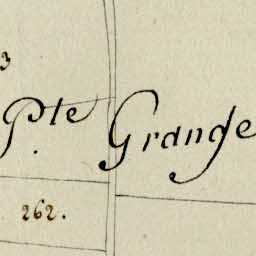 3
Pte Grange
262.